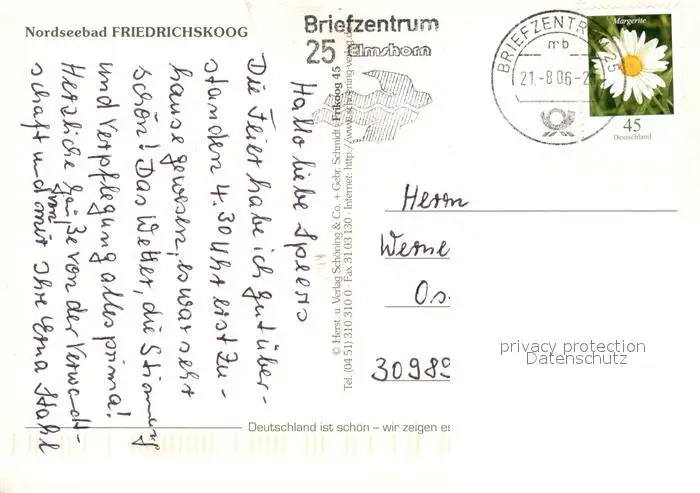 Nordseebad FRIEDRICHSKOOG
Briefzentrum
25 Elmshorn
BRIEFZENTRUM 25
mb
21.-8.06-2
Margerite
45
Deutschland
Hallo liebe Speers
Die Feier habe ich gut über-
standen, 4.30 Uhr erst Zu-
hause gewesen, es war sehr
schön! Das Wetter, die Stimmung
und Verpflegung alles prima!
Herzliche Grüße von der Verwandt-
schaft und von mir Ihre Erna Stahl
© Herst. u. Verlag Schöning & Co. + Gebr. Schmidt · Frikoog 45
Tel. (04 51) 310 310 0 · Fax 31 03 130 · Internet: http://www.schoening-verlag
Herrn
Werne
Os
30989
privacy protection
Datenschutz
Deutschland ist schön – wir zeigen es